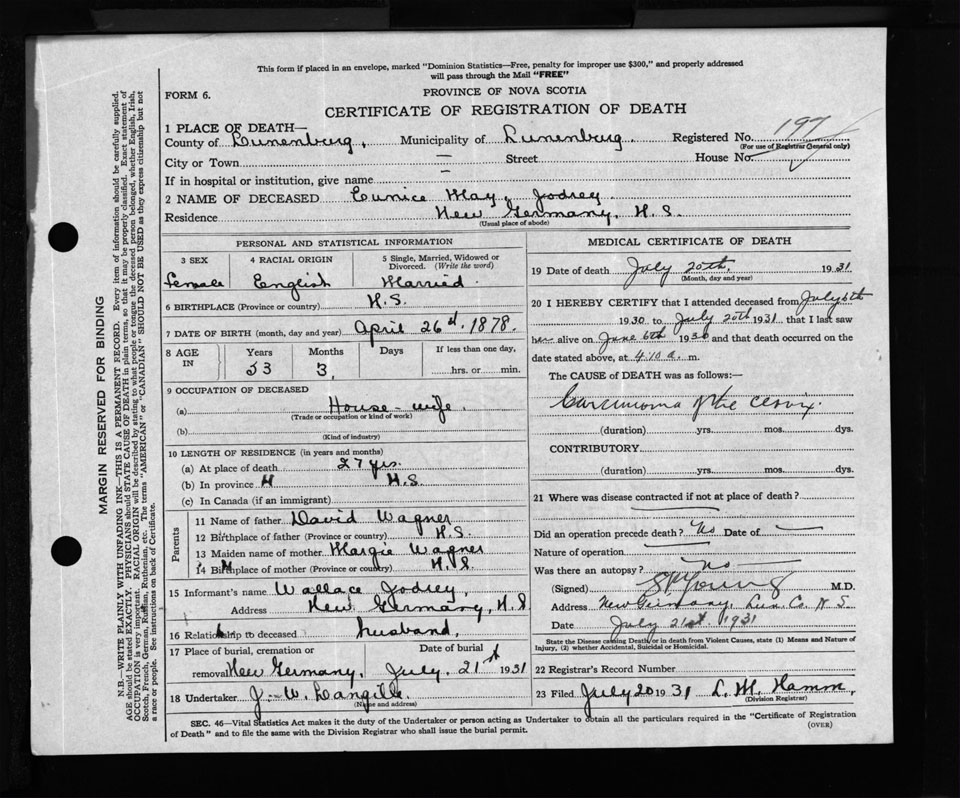 This form if placed in an envelope, marked "Dominion Statistics—Free, penalty for improper use $300," and properly addressed
will pass through the Mail "FREE"
FORM 6.
PROVINCE OF NOVA SCOTIA
CERTIFICATE OF REGISTRATION OF DEATH
1 PLACE OF DEATH—
County of Lunenburg, Municipality of Lunenburg Registered No. 197
(For use of Registrar General only)
City or Town — Street House No.
If in hospital or institution, give name —
2 NAME OF DECEASED Eunice May, Jodrey
Residence New Germany, N.S.
(Usual place of abode)
PERSONAL AND STATISTICAL INFORMATION
3 SEX 4 RACIAL ORIGIN 5 Single, Married, Widowed or Divorced. (Write the word)
Female English Married.
6 BIRTHPLACE (Province or country) N.S.
7 DATE OF BIRTH (month, day and year) April 26th, 1878.
8 AGE IN Years Months Days If less than one day,
53 3, hrs. or min.
9 OCCUPATION OF DECEASED
(a) House-wife.
(Trade or occupation or kind of work)
(b)
(Kind of industry)
10 LENGTH OF RESIDENCE (in years and months)
(a) At place of death 27 yrs.
(b) In province N.S.
(c) In Canada (if an immigrant)
Parents
11 Name of father David Wagner
12 Birthplace of father (Province or country) N.S.
13 Maiden name of mother Margie Wagner
14 Birthplace of mother (Province or country) N.S.
15 Informant's name Wallace Jodrey
Address New Germany, N.S.
16 Relationship to deceased husband,
17 Place of burial, cremation or removal Date of burial
New Germany, July, 21st 1931
18 Undertaker J. W. Langille
(Name and address)
MEDICAL CERTIFICATE OF DEATH
19 Date of death July 20th, 1931
(Month, day and year)
20 I HEREBY CERTIFY that I attended deceased from July 6th
1930 to July 20th 1931 that I last saw
her alive on June 6th 1930 and that death occurred on
date stated above, at 4:10 a. m.
The CAUSE of DEATH was as follows:—
Carcinoma of the cervix.
(duration) yrs. mos. dys.
CONTRIBUTORY.
(duration) yrs. mos. dys.
21 Where was disease contracted if not at place of death?
Did an operation precede death? No Date of —
Nature of operation
Was there an autopsy? No
(Signed) S P Young M.D.
Address New Germany, Lun. Co. N.S.
Date July 21st 1931
State the Disease causing Death, or in death from Violent Causes, state (1) Means and Nature of
Injury, (2) whether Accidental, Suicidal or Homicidal.
22 Registrar's Record Number
23 Filed July 20 1931 L. M. Hamm,
(Division Registrar)
SEC. 46—Vital Statistics Act makes it the duty of the Undertaker or person acting as Undertaker to obtain all the particulars required in the "Certificate of Registration
of Death" and to file the same with the Division Registrar who shall issue the burial permit.
(OVER)
MARGIN RESERVED FOR BINDING
N.B.—WRITE PLAINLY WITH UNFADING INK—THIS IS A PERMANENT RECORD. Every item of information should be carefully supplied.
AGE should be stated EXACTLY. PHYSICIANS should STATE CAUSE OF DEATH in plain terms, so that it may be properly classified. Exact statement of
OCCUPATION is very important. RACIAL ORIGIN will be described by stating to what people or tongue the deceased person belonged, whether English, Irish,
Scotch, French, German, Russian, Ruthenian, etc. The terms "AMERICAN" or "CANADIAN" SHOULD NOT BE USED as they express citizenship but not
a race or people. See instructions on back of Certificate.